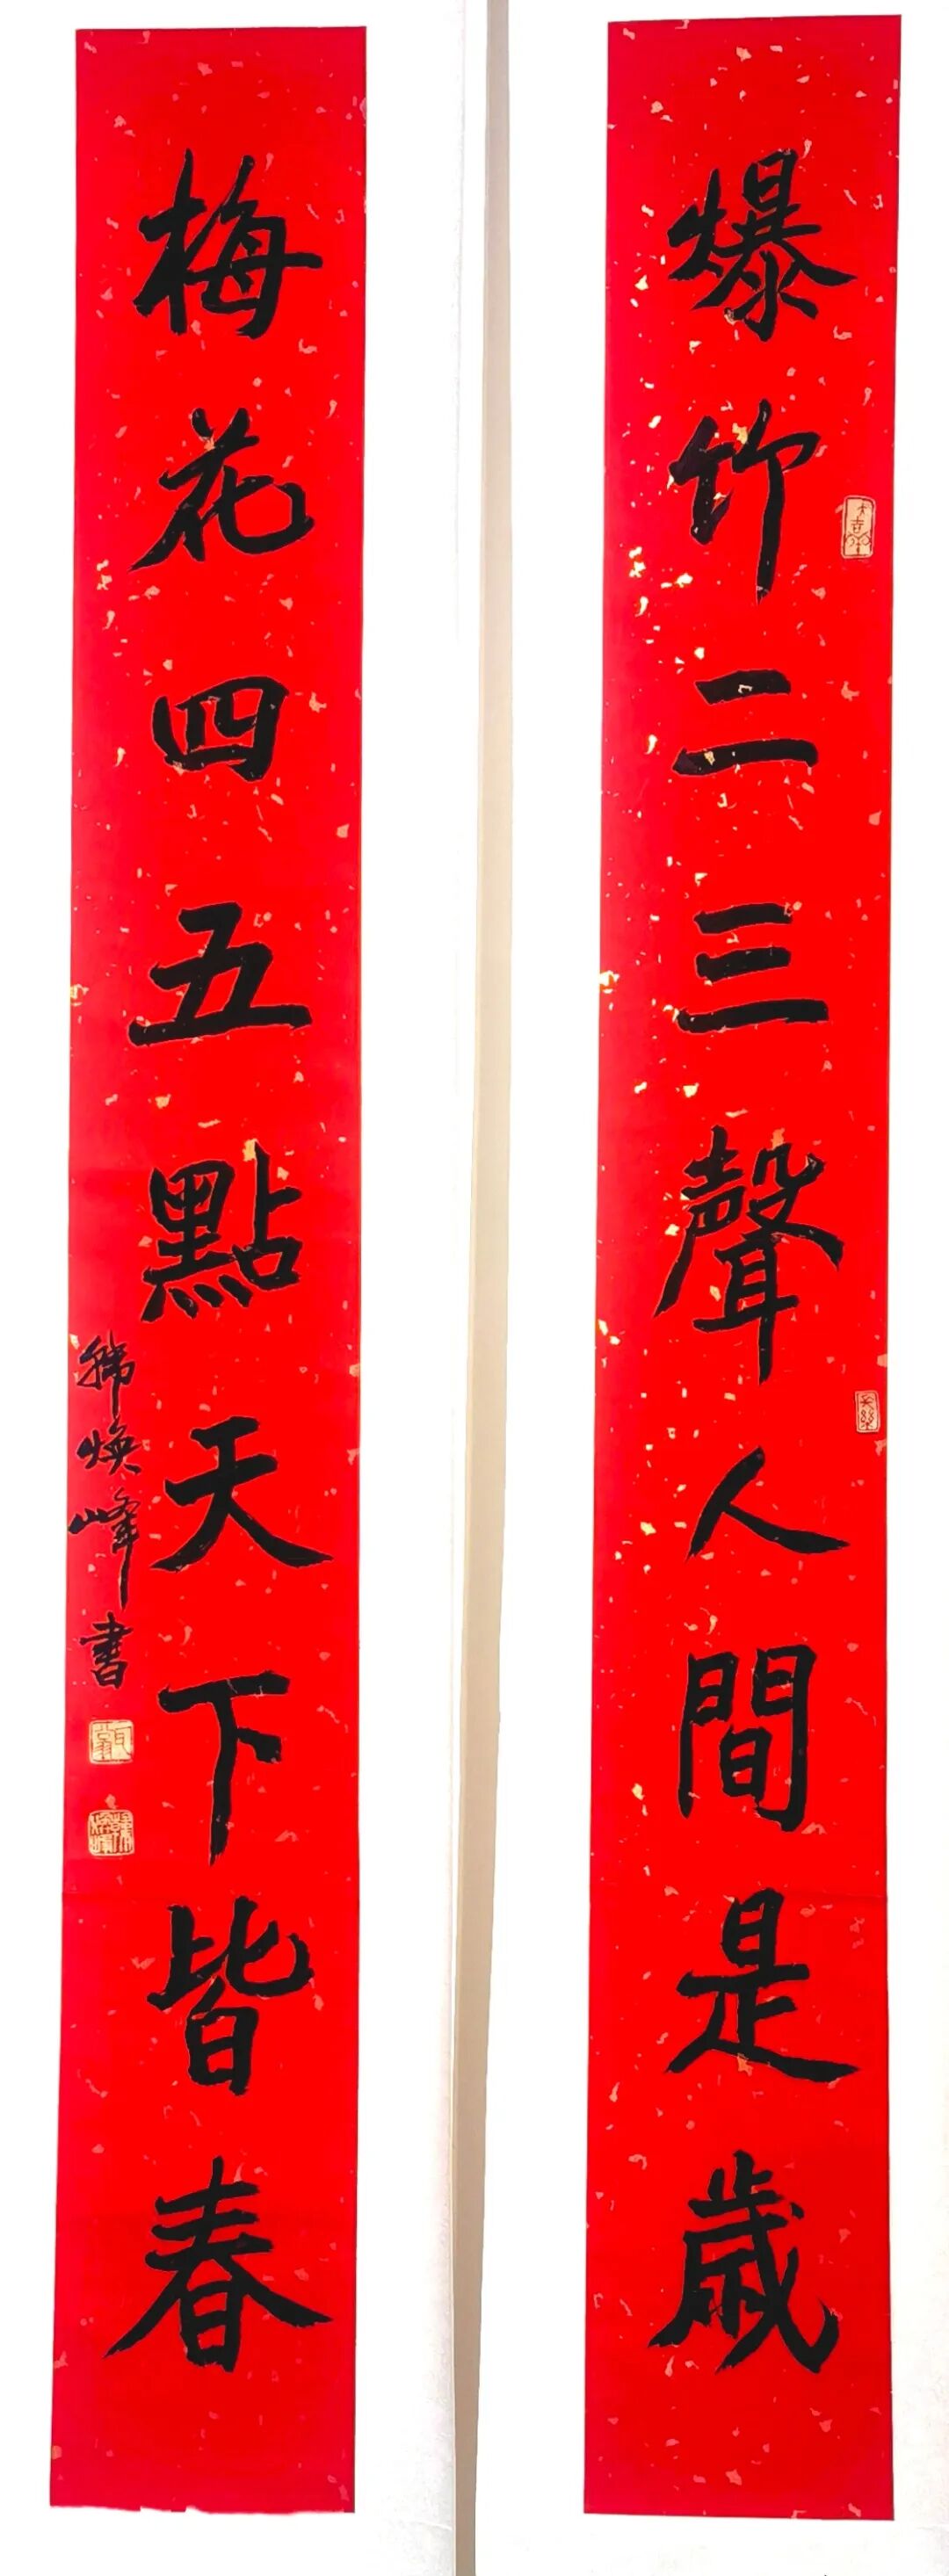 爆竹二三聲人間是歲
梅花四五點天下皆春
韓煥峰書